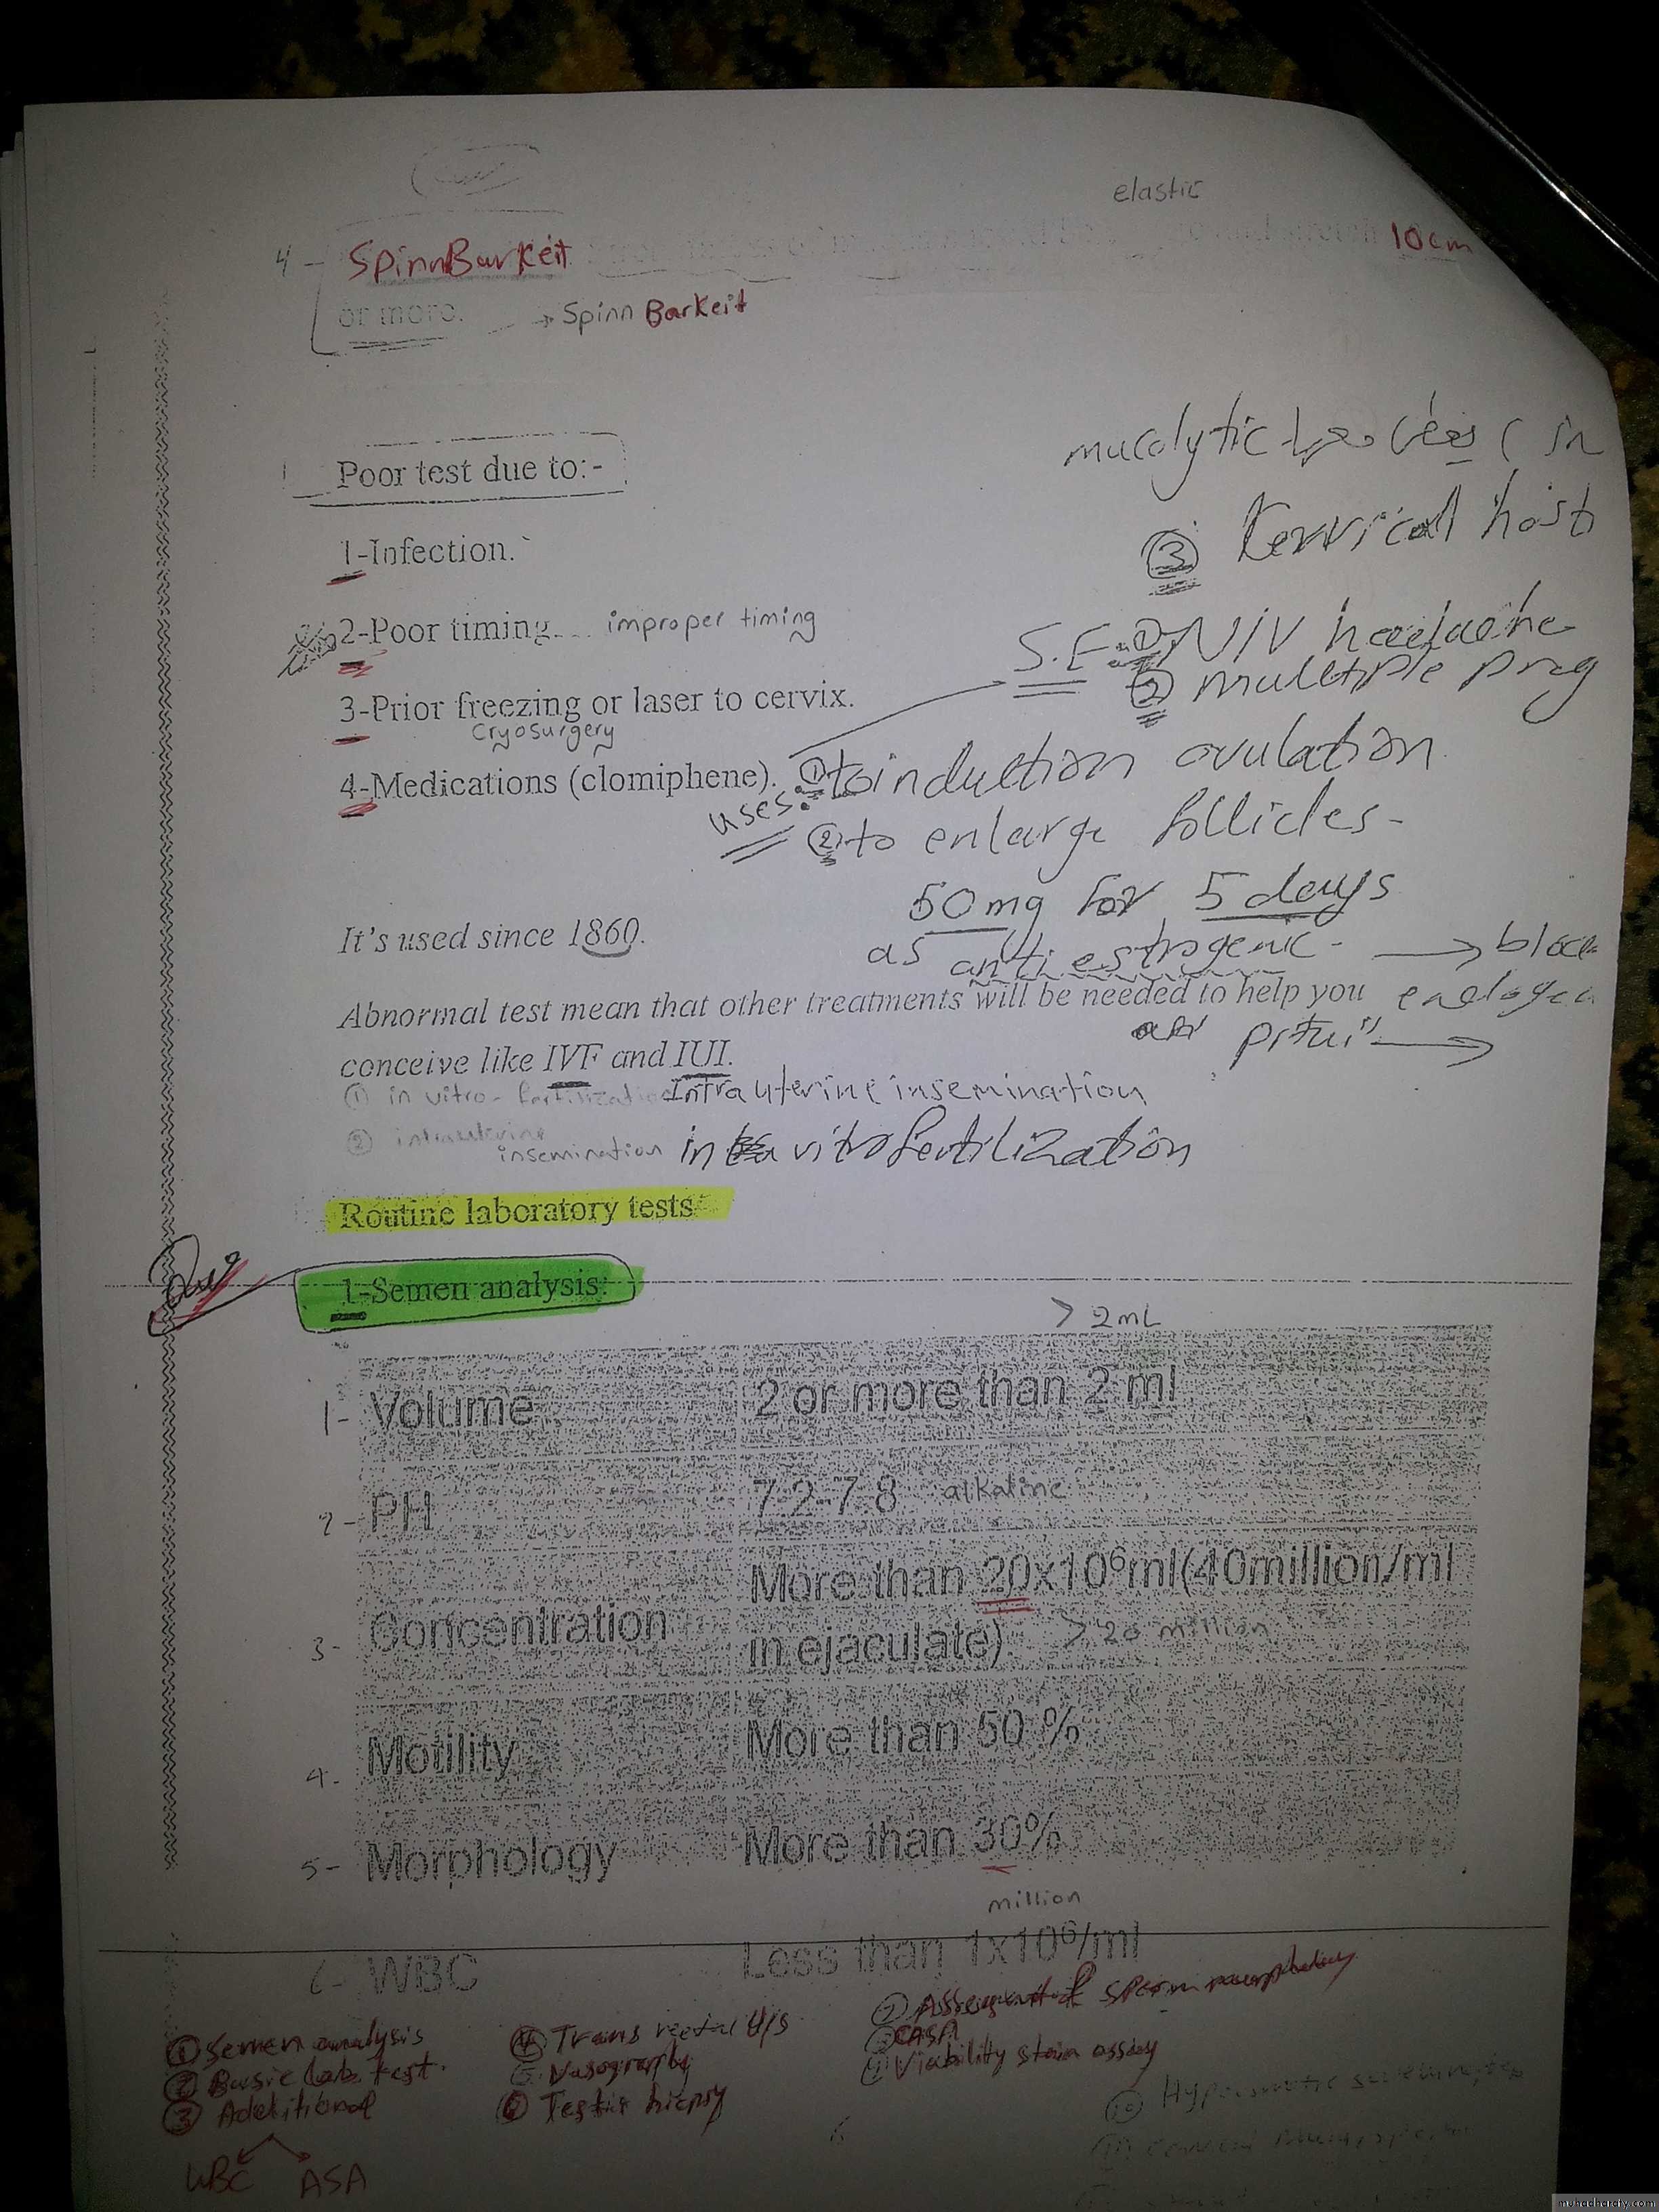 elastic
4- SpinnBarkeit 10cm
or more. → Spinn Barkeit
mucolytic (in
Poor test due to:-
③ Kervical host
1-Infection.
2-Poor timing... improper timing
S.E. ① N/V headache
② multiple preg
3-Prior freezing or laser to cervix.
Cryosurgery
4-Medications (clomiphene). uses: ① to induction ovulation
② to enlarge follicles-
50mg for 5 days
It's used since 1860.
as anti estrogenic →
Abnormal test mean that other treatments will be needed to help you
conceive like IVF and IUI.
① in vitro- fertilization Intrauterine insemination
② intrauterine insemination in vitro fertilization
Routine laboratory tests
1-Semen analysis:
> 2mL
1- Volume 2 or more than 2 ml
2- PH 7.2-7.8 alkaline
3- Concentration More than 20x10⁶ml(40million/ml
in ejaculate) >20 million
4- Motility More than 50 %
5- Morphology More than 30%
million
6- WBC Less than 1x10⁶/ml
① Semen analysis ④ Trans rectal U/S of sperm morphology
② Basic lab. test. ⑤ Vasography CASA
③ Additional ⑥ Testis biopsy Viability stain assay
WBC ASA
6
muhadharaty.com